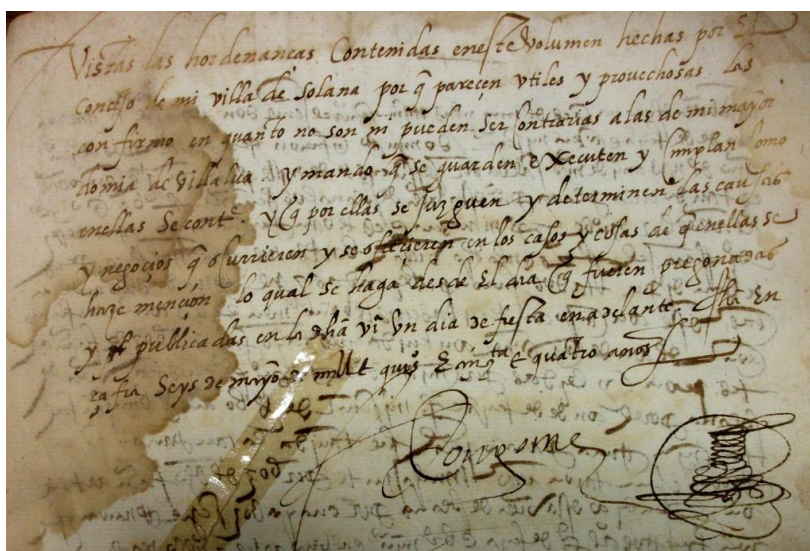 Vistas las hordenanças Contenidas eneste Volumen hechas por El
concejo de mi villa de Solana por q̃ pareçen vtiles y provechosas las
confirmo en quanto no son ni pueden Ser Contrarias alas de mi mayor
domia de Villalva. y mando q̃ se guarden executen y Cumplan como
enellas Se contᵉ. y q̃ por ellas se juzguen y determinen las causas
y negoçios q̃ ocurrieren y se ofreçieren en los casos y cosas de q̃ enellas se
haze mençion lo qual se haga desde El dia q̃ fueren pregonadas
y publicadas en la dha vᵃ Un dia de fiesta en adelante. ffha En
çafra Seys de mayo de mill t quios E cinqᵗᵃ E quatro años